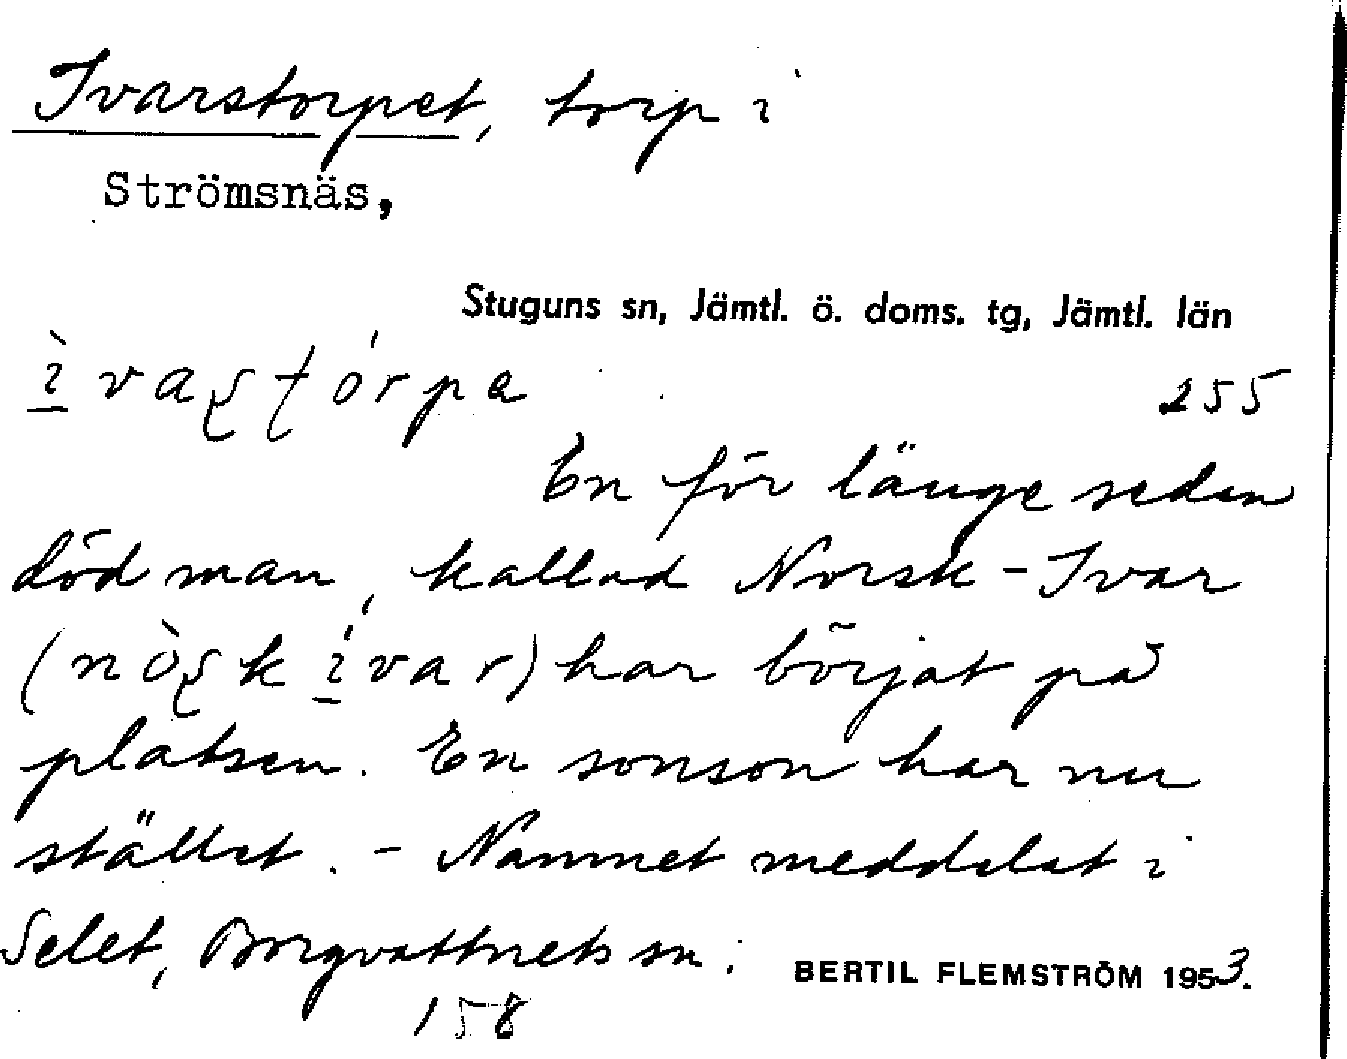 Ivarstorpet, torp i
Strömsnäs,
Stuguns sn, Jämtl. ö. doms. tg, Jämtl. län
ì̱vaʂʈórpa
255
En för länge sedan
död man, kallad Norsk-Ivar
(nòʂkí̱var) har börjat på
platsen. En sonson har nu
stället. - Namnet meddelat i
Selet, Borgvattnets sn.
BERTIL FLEMSTRÖM 1953.
158